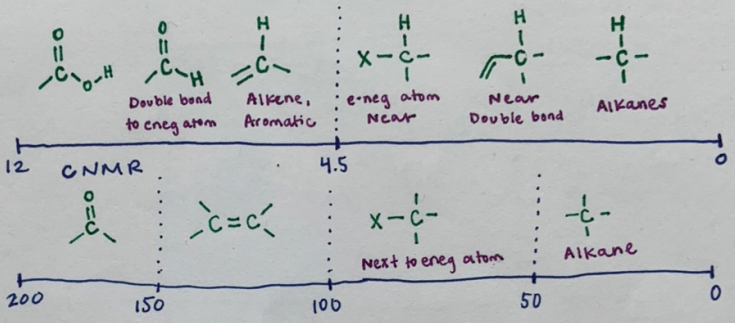 O
H
O
H
O
H
C
C
H
C
X-C-
C-
-C-
O
H
Double bond
to eneg atom
Alkene,
Aromatic
e-neg atom
Near
Near
Double bond
Alkanes
12
CNMR
4.5
0
O
C
C=C
X-C-
-C-
Next to eneg atom
Alkane
200
150
100
50
0